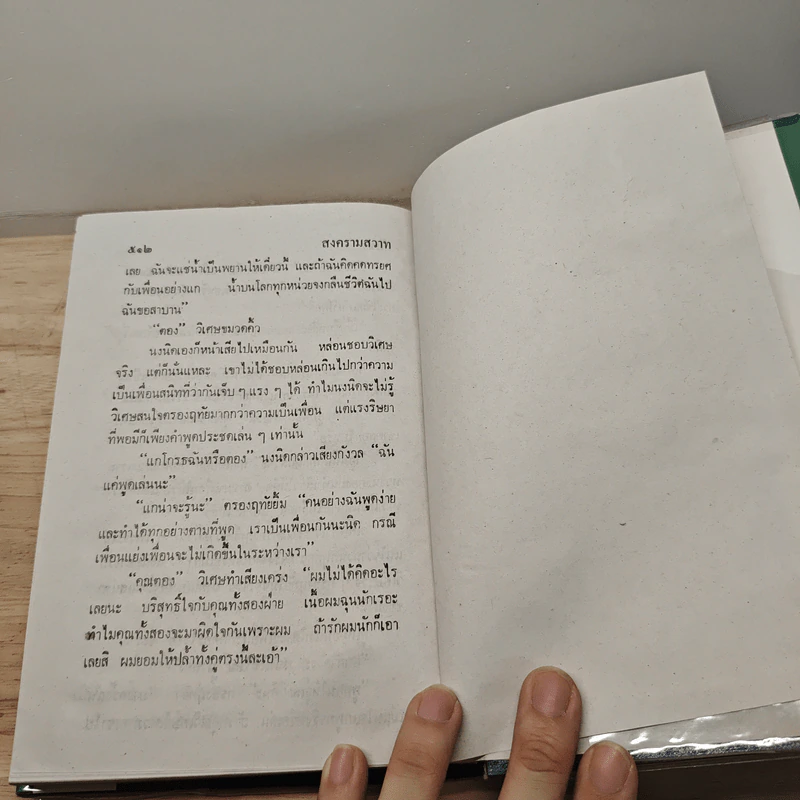 ๕๑๒ สงครามสวาท
เลย ฉันจะแช่น้ำเป็นพยานให้เดี๋ยวนี้ และถ้าฉันคิดคดทรยศ
กับเพื่อนอย่างแก น้ำบนโลกทุกหน่วยจงกลืนชีวิตฉันไป
ฉันขอสาบาน”
“ตอง” วิเศษขมวดคิ้ว
นงนิตเองก็หน้าเสียไปเหมือนกัน หล่อนชอบวิเศษ
จริง แต่ก็นั่นแหละ เขาไม่ได้ชอบหล่อนเกินไปกว่าความ
เป็นเพื่อนสนิทที่ว่ากันเจ็บ ๆ แรง ๆ ได้ ทำไมนงนิตจะไม่รู้
วิเศษสนใจตรองฤทัยมากกว่าความเป็นเพื่อน แต่แรงริษยา
ที่พอมีก็เพียงคำพูดประชดเล่น ๆ เท่านั้น
“แกโกรธฉันหรือตอง” นงนิตกล่าวเสียงกังวล “ฉัน
แค่พูดเล่นนะ”
“แกน่าจะรู้นะ” ตรองฤทัยยิ้ม “คนอย่างฉันพูดง่าย
และทำได้ทุกอย่างตามที่พูด เราเป็นเพื่อนกันนะนิต กรณี
เพื่อนแย่งเพื่อนจะไม่เกิดขึ้นในระหว่างเรา”
“คุณตอง” วิเศษทำเสียงเคร่ง “ผมไม่ได้คิดอะไร
เลยนะ บริสุทธิ์ใจกับคุณทั้งสองฝ่าย เนื้อผมฉุนนักเรอะ
ทำไมคุณทั้งสองจะมาผิดใจกันเพราะผม ถ้ารักผมนักก็เอา
เลยสิ ผมยอมให้ปล้ำทั้งคู่ตรงนี้ละเอ้า”